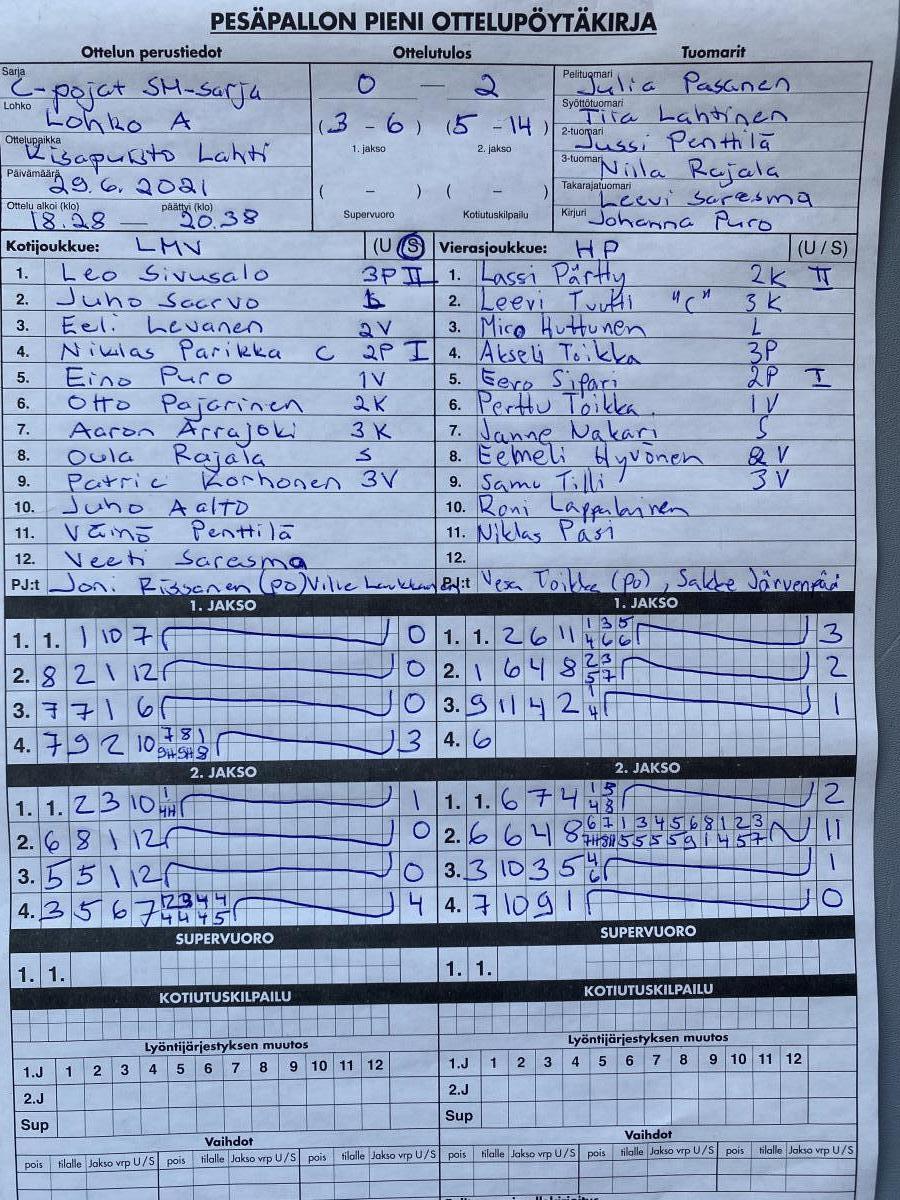 PESÄPALLON PIENI OTTELUPÖYTÄKIRJA
Ottelun perustiedot Ottelutulos Tuomarit
Sarja C-pojat SM-sarja
Lohko Lohko A
Ottelupaikka Kisapuisto Lahti
Päivämäärä 29.6.2021
Ottelu alkoi (klo) päättyi (klo)
18.28 — 20.38
0 — 2
(3 - 6) (5 - 14)
1. jakso 2. jakso
( - ) ( - )
Supervuoro Kotiutuskilpailu
Pelituomari Julia Pasanen
Syöttötuomari Tiia Lahtinen
2-tuomari Jussi Penttilä
3-tuomari Niila Rajala
Takarajatuomari Leevi Saresma
Kirjuri Johanna Puro
Kotijoukkue: LMV (U S)
1. Leo Sivusalo 3P II
2. Juho Saarvo
3. Eeli Levanen 2V
4. Niklas Parikka C 2P I
5. Eino Puro 1V
6. Otto Pajarinen 2K
7. Aaron Arrajoki 3K
8. Oula Rajala S
9. Patric Korhonen 3V
10. Juho Aalto
11. Väinö Penttilä
12. Veeti Saresma
PJ:t Joni Rissanen (PO) Ville
Vierasjoukkue: HP (U / S)
1. Lassi Pärtty 2K II
2. Leevi Tuutti "C" 3K
3. Miro Huttunen L
4. Akseli Toikka 3P
5. Eero Sipari 2P I
6. Perttu Toikka 1V
7. Janne Nakari S
8. Eemeli Hyvönen 2V
9. Samu Tilli 3V
10. Roni Lappalainen
11. Niklas Pasi
12.
PJ:t Vesa Toikka (PO), Sakke Järvenpää
1. JAKSO
1. 1. 1 10 7 0
2. 8 2 1 12 0
3. 7 7 1 6 0
4. 7 9 2 10 7 8 1 3
9H 9H 8
2. JAKSO
1. 1. 2 3 10 1 1
4H
2. 6 8 1 12 0
3. 5 5 1 12 0
4. 3 5 6 7 1 2 3 4 4 4
4 4 4 5
SUPERVUORO
1. 1.
KOTIUTUSKILPAILU
Lyöntijärjestyksen muutos
1.J 1 2 3 4 5 6 7 8 9 10 11 12
2.J
Sup
Vaihdot
pois tilalle Jakso vrp U/S pois tilalle Jakso vrp U/S pois tilalle Jakso vrp U/S
1. JAKSO
1. 1. 2 6 11 1 3 5 3
4 6 6
2. 1 6 4 8 2 3 2
5 7
3. 9 11 4 2 1 1
4
4. 6
2. JAKSO
1. 1. 6 7 4 1 5 2
4 8
2. 6 6 4 8 6 7 1 3 4 5 6 8 1 2 3 11
7H 8H 5 5 5 5 9 1 4 5 7
3. 3 10 3 5 4 1
6
4. 7 10 9 1 0
SUPERVUORO
1. 1.
KOTIUTUSKILPAILU
Lyöntijärjestyksen muutos
1.J 1 2 3 4 5 6 7 8 9 10 11 12
2.J
Sup
Vaihdot
pois tilalle Jakso vrp U/S pois tilalle Jakso vrp U/S pois tilalle Jakso vrp U/S